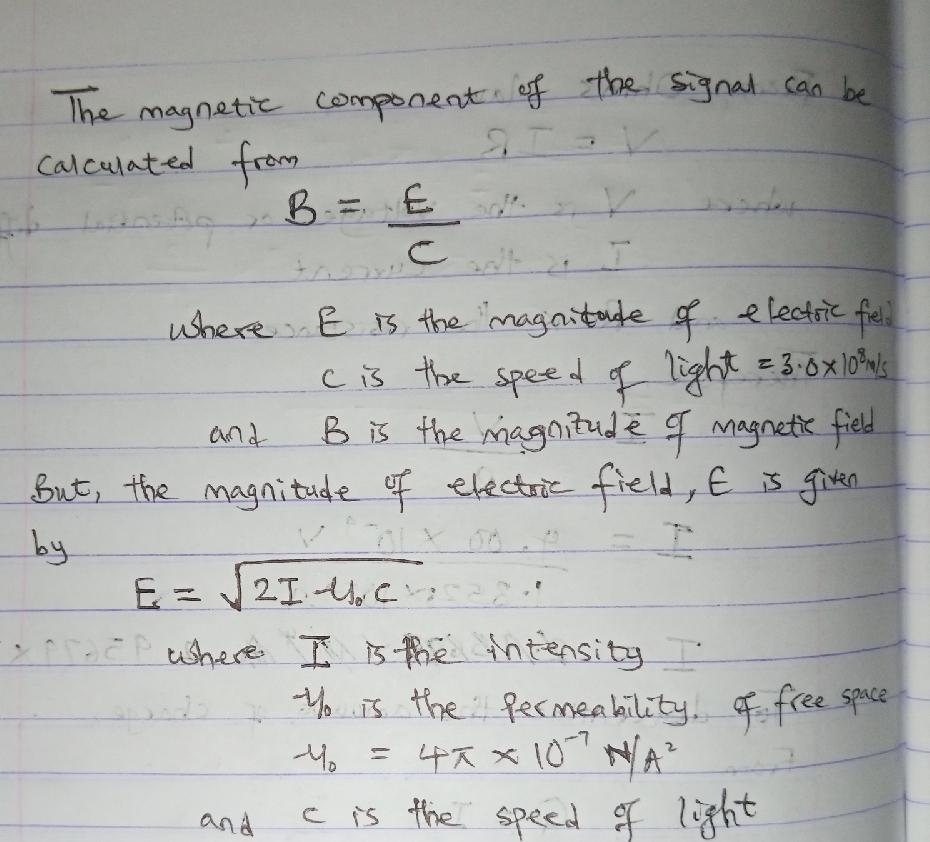 The magnetic component of the signal can be
calculated from
B = E
C
where E is the magnitude of electric field
C is the speed of light = 3.0 x 10⁸ m/s
and B is the magnitude of magnetic field
But, the magnitude of electric field, E is given
by
E = √2I μ₀ C
where I is the intensity
μ₀ is the permeability of free space
μ₀ = 4π x 10⁻⁷ N/A²
and C is the speed of light